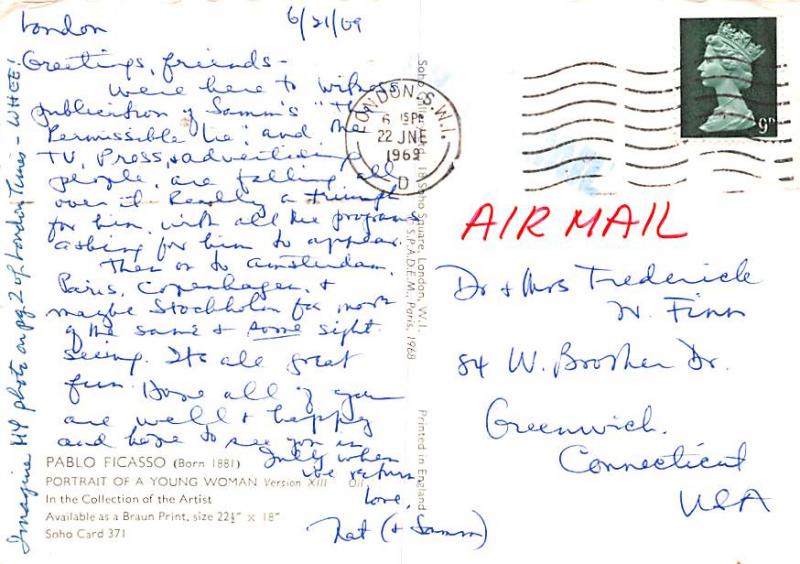 London 6/21/69
Greetings, friends -
We're here to witness
publication of Samm's "The
Permissible Lie", and the
TV, Press, & advertising
people, are falling all
over it. Really a triumph
for him, with all the programs
asking for him to appear.
Then on to Amsterdam,
Paris, Copenhagen, &
maybe Stockholm for more
of the same & some sight
seeing. Its all great
fun. Hope all of you
are well & happy
and hope to see you in
July when
we return
Love,
Nat (& Samm)
Imagine my photo on pg. 2 of London Times - WHEE!
PABLO PICASSO (Born 1881)
PORTRAIT OF A YOUNG WOMAN Version XIII Oil
In the Collection of the Artist
Available as a Braun Print, size 22½" x 18"
Soho Card 371
Soho Square, London, W.I.
S.P.A.D.E.M., Paris, 1968
Printed in England
LONDON. S.W.I.
6 15PM
22 JNE
1969
D
9D
AIR MAIL
Dr & Mrs Frederick
W. Finn
84 W. Brother Dr.
Greenwich.
Connecticut
USA